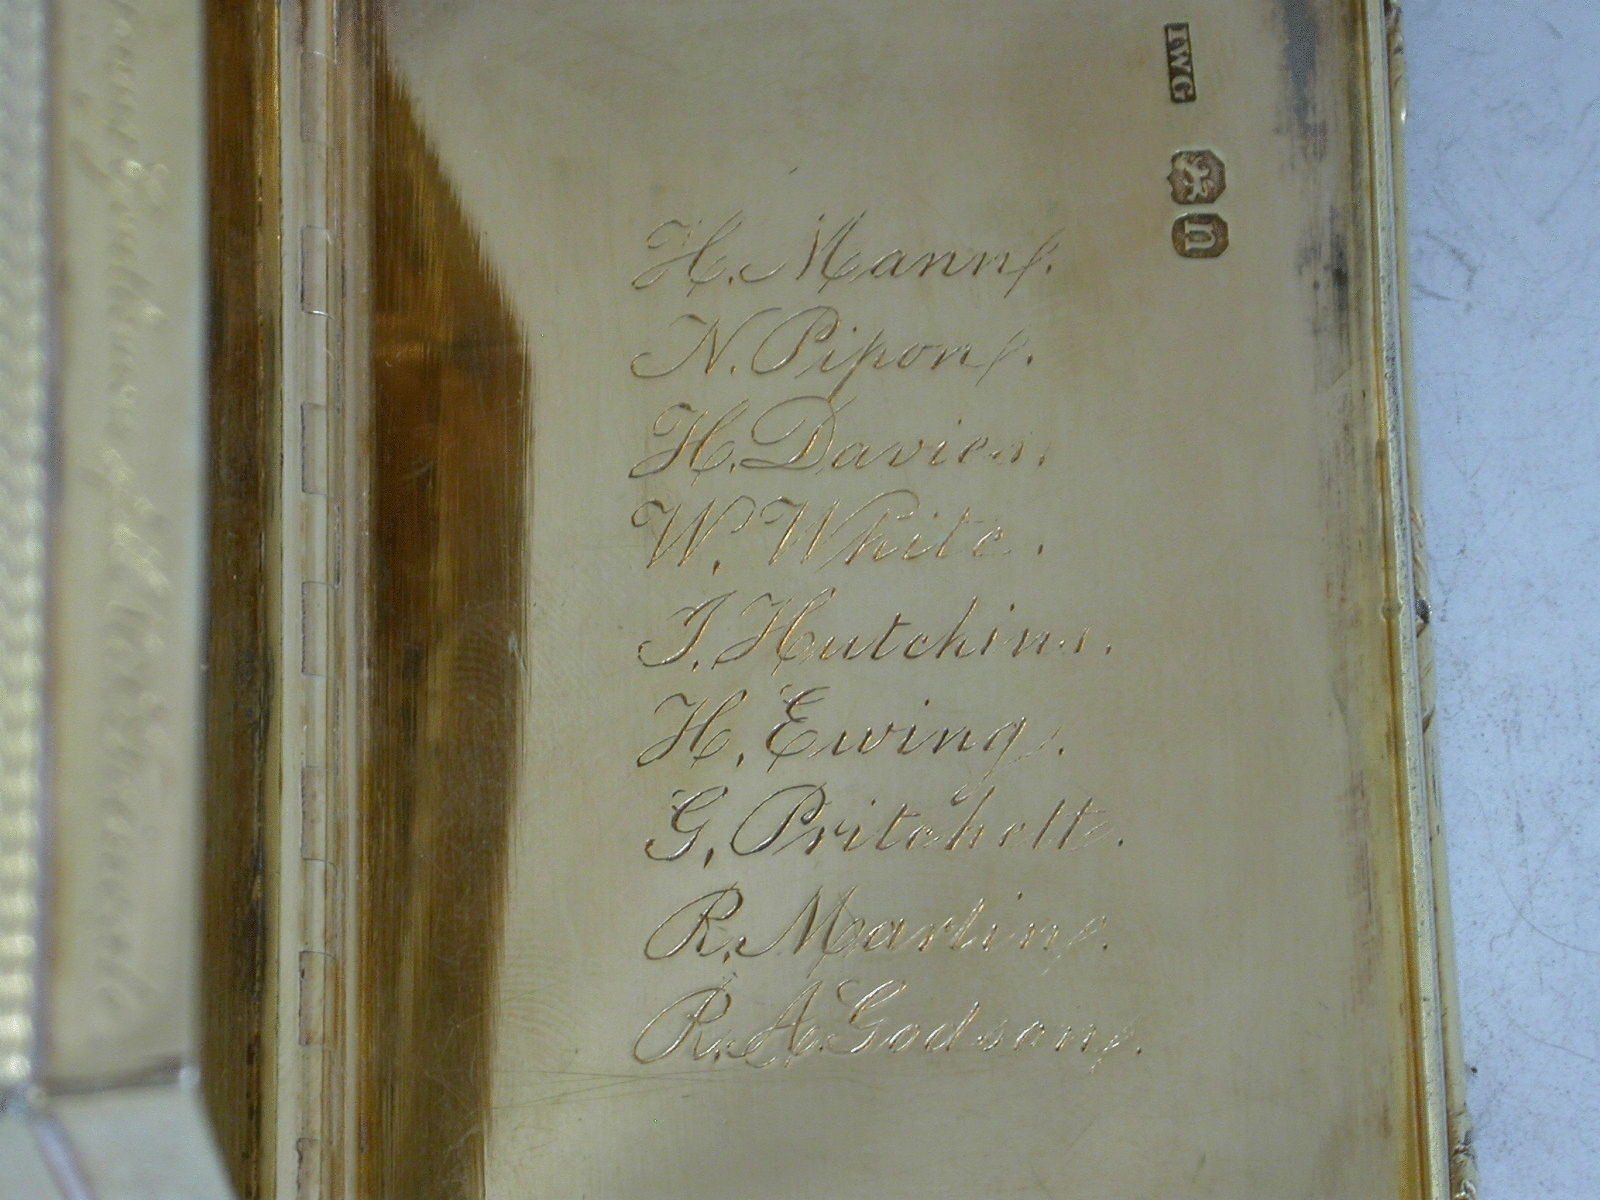 IWG
n
H. Mann.
N. Pipon.
H. Davies.
W. White.
J. Hutchins.
H. Ewing.
G. Pritchett.
R. Martin.
R. A. Godson.